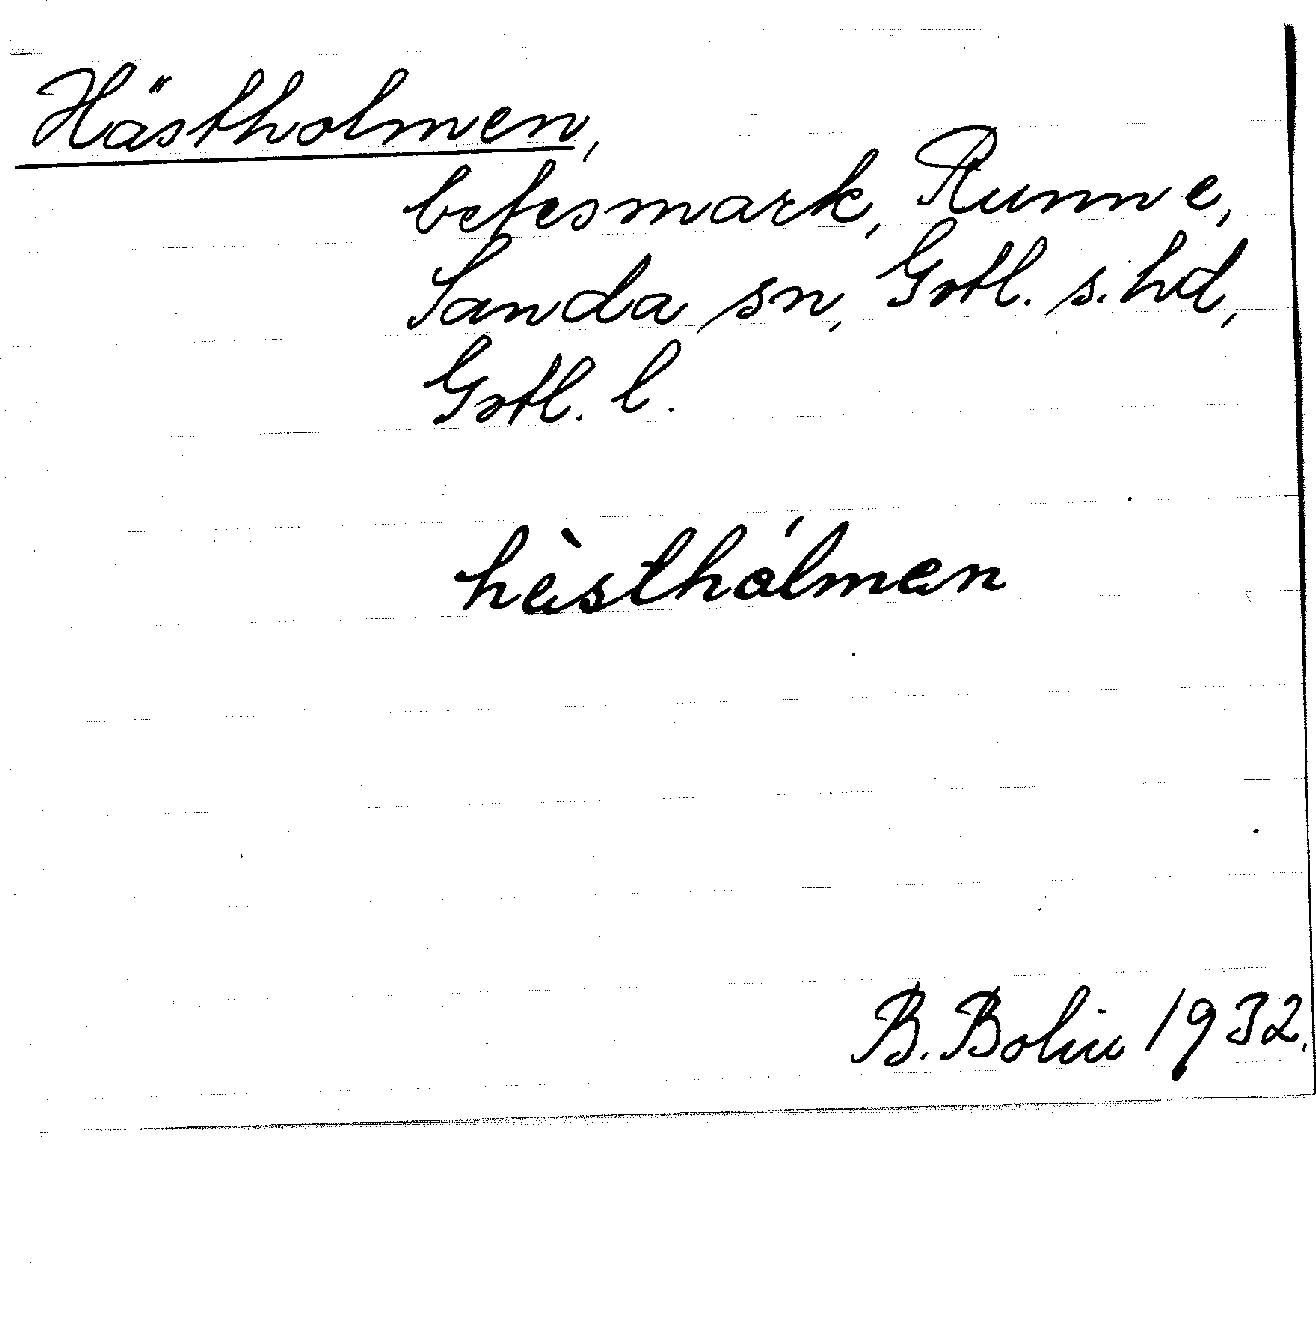 Hästholmen,
betesmark, Runne,
Sanda sn, Gotl. s. hd,
Gotl. l.
hèsthólmen
B. Bolin 1932.